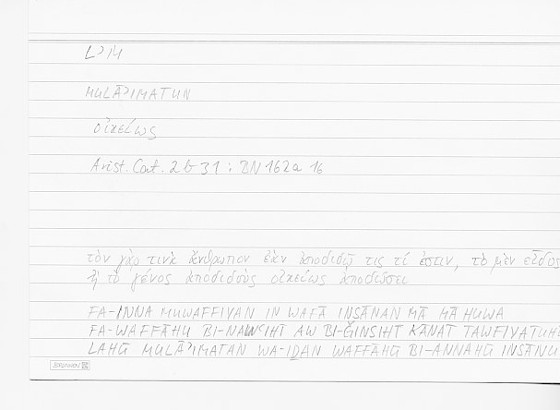 LʾM
MULĀʾIMATUN
οἰκείως
Arist. Cat. 2 b 31 : BN 162a 16
τὸν γάρ τινὰ ἄνθρωπον ἐὰν ἀποδιδῷ τις τί ἐστιν, τὸ μὲν εἶδος
ἢ τὸ γένος ἀποδιδοὺς οἰκείως ἀποδώσει
FA-INNA MUWAFFIYAN IN WAFĀ INSĀNAN MĀ MĀ HUWA
FA-WAFFĀHU BI-NAWʿIHĪ AW BI-ǦINSIHĪ KĀNAT TAWFIYATUHŪ
LAHŪ MULĀʾIMATAN WA-IḎAN WAFFĀHŪ BI-ANNAHŪ INSĀNU
BRUNNEN